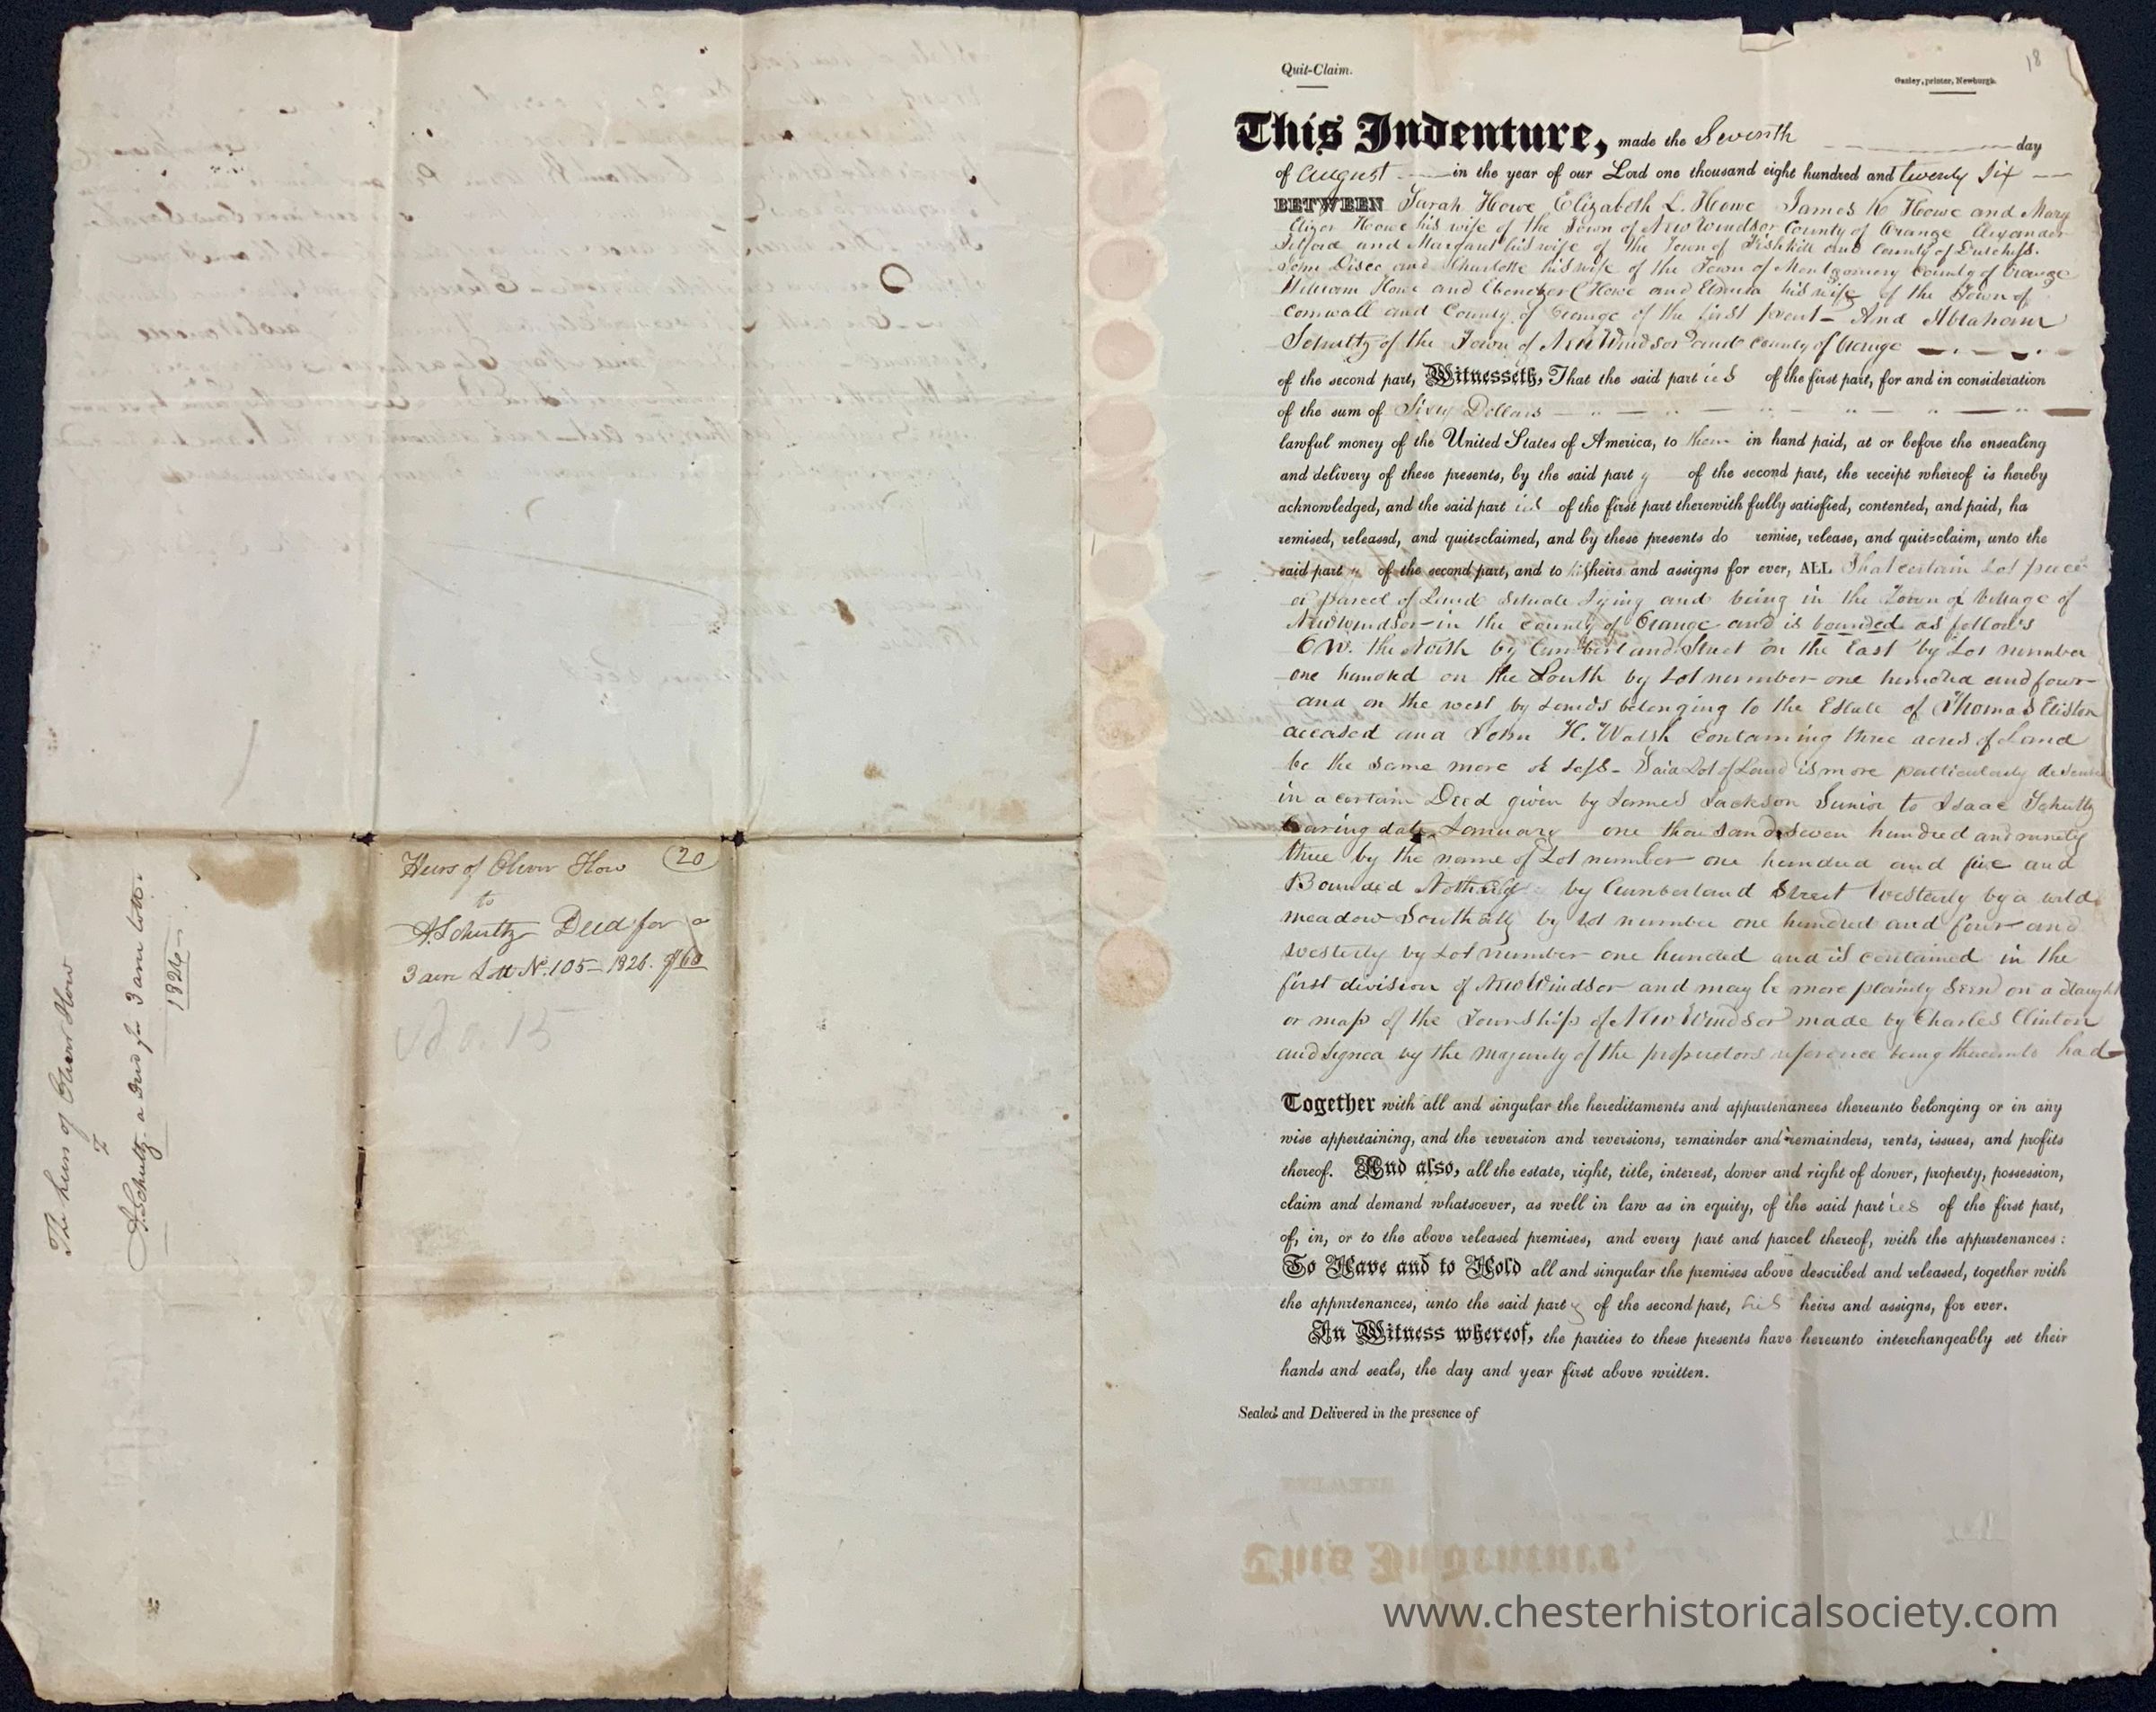 The heirs of Oliver How
to
A. Schultz a Deed for 3 acre lott
1826
Heirs of Oliver How
20
to
A. Schultz Deed for a
3 acre Lott No. 105 - 1826. $60
No. 15
18
Quit-Claim.
Gazley, printer, Newburgh.
This Indenture, made the Seventh day
of August in the year of our Lord one thousand eight hundred and twenty Six
BETWEEN Sarah Howe Elizabeth L. Howe James K Howe and Mary
Howe his wife of the Town of New Windsor County of Orange Alexander
Telford and Margaret his wife of the Town of Fishkill and County of Dutchess.
John and Charlotte his wife of the Town of Montgomery County of Orange
William Howe and Ebenezer C Howe and his wife of the Town of
Cornwall and County of Orange of the first part - And Abraham
Schultz of the Town of New Windsor and County of Orange
of the second part, Witnesseth, That the said part ies of the first part, for and in consideration
of the sum of Sixty Dollars
lawful money of the United States of America, to them in hand paid, at or before the ensealing
and delivery of these presents, by the said part y of the second part, the receipt whereof is hereby
acknowledged, and the said part ies of the first part therewith fully satisfied, contented, and paid, ha
remised, released, and quit=claimed, and by these presents do remise, release, and quit=claim, unto the
said part y of the second part, and to his heirs and assigns for ever, ALL That certain Lot piece
or parcel of Land Situate Lying and being in the Town of Village of
New windsor in the County of Orange and is bounded as follows
On the North by Cumberland Street on the East by Lot number
one hundred on the South by Lot number one hundred and four
and on the west by Lands belonging to the Estate of Thomas Eliston
deceased and John H. Walsh Containing three acres of Land
be the same more or less - Said Lot of Land is more particularly
in a certain Deed given by James Jackson Junior to Isaac Schultz
bearing date January one thousand seven hundred and ninety
three by the name of Lot number one hundred and five and
Bounded by Cumberland Street Westerly by a wild
meadow by Lot number one hundred and four and
westerly by Lot number one hundred and is contained in the
first division of New Windsor and may be more plainly seen on a draught
or map of the Township of New Windsor made by Charles Clinton
and signed by the majority of the proprietors reference being thereunto had
Together with all and singular the hereditaments and appurtenances thereunto belonging or in any
wise appertaining, and the reversion and reversions, remainder and remainders, rents, issues, and profits
thereof. And also, all the estate, right, title, interest, dower and right of dower, property, possession,
claim and demand whatsoever, as well in law as in equity, of the said part ies of the first part,
of, in, or to the above released premises, and every part and parcel thereof, with the appurtenances:
To Have and to Hold all and singular the premises above described and released, together with
the appurtenances, unto the said part y of the second part, his heirs and assigns, for ever.
In Witness whereof, the parties to these presents have hereunto interchangeably set their
hands and seals, the day and year first above written.
Sealed and Delivered in the presence of
www.chesterhistoricalsociety.com